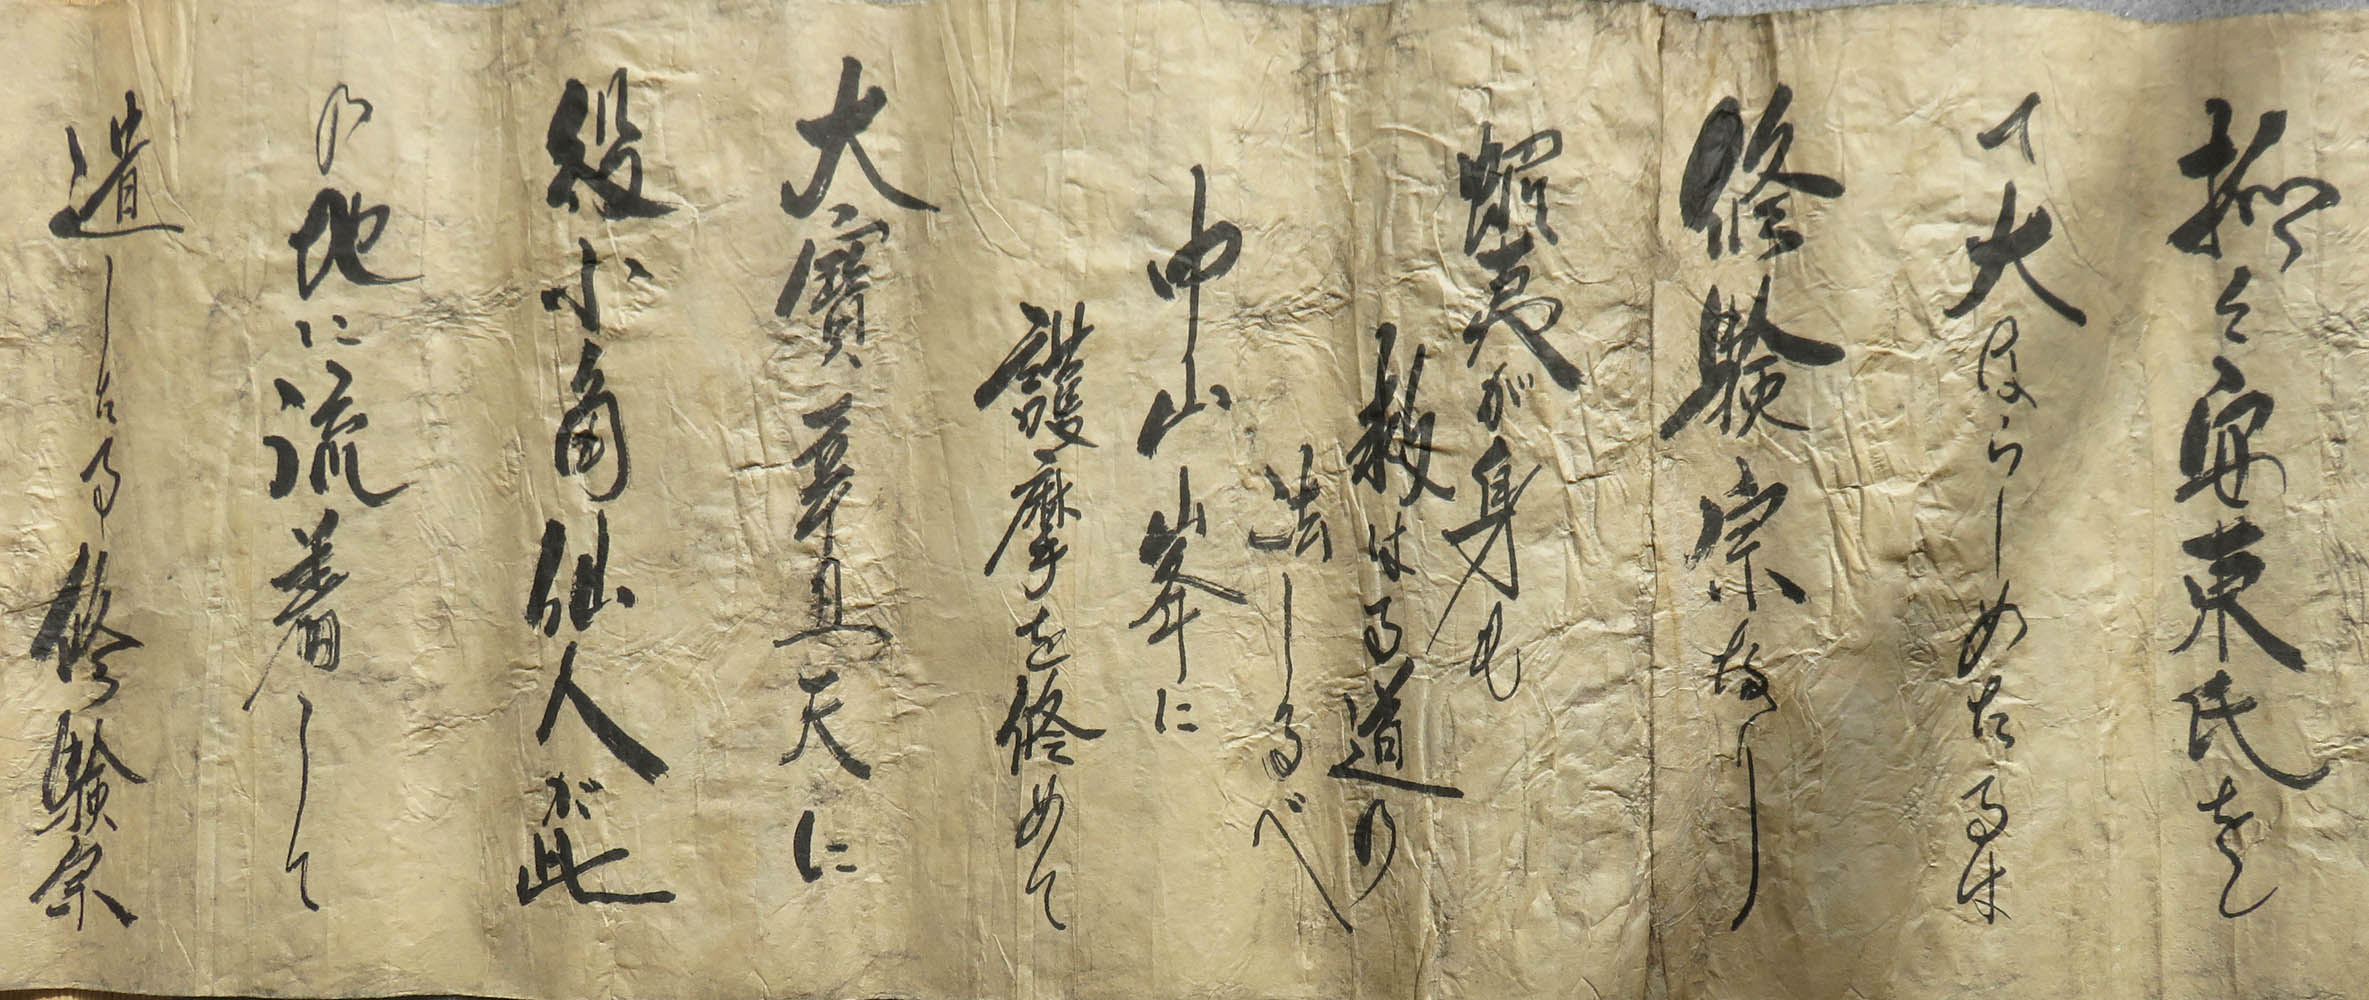 抑々安東氏をし
て大ならしめたるは
修験宗なり
蝦夷が身も
救はる道の
法しるべ
中山峯に
護摩を修めて
大寶辛丑天に
役小角仙人が此
の地に流着して
遺したる修験宗